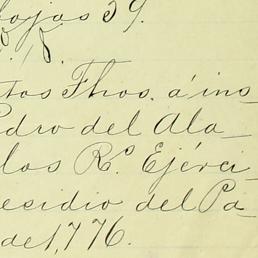 fojas 39.
18.
tos Fhos. á ins_
Pedro del Ala_
los Rs. Ejérci_
residio del Pa_
de 1,776.